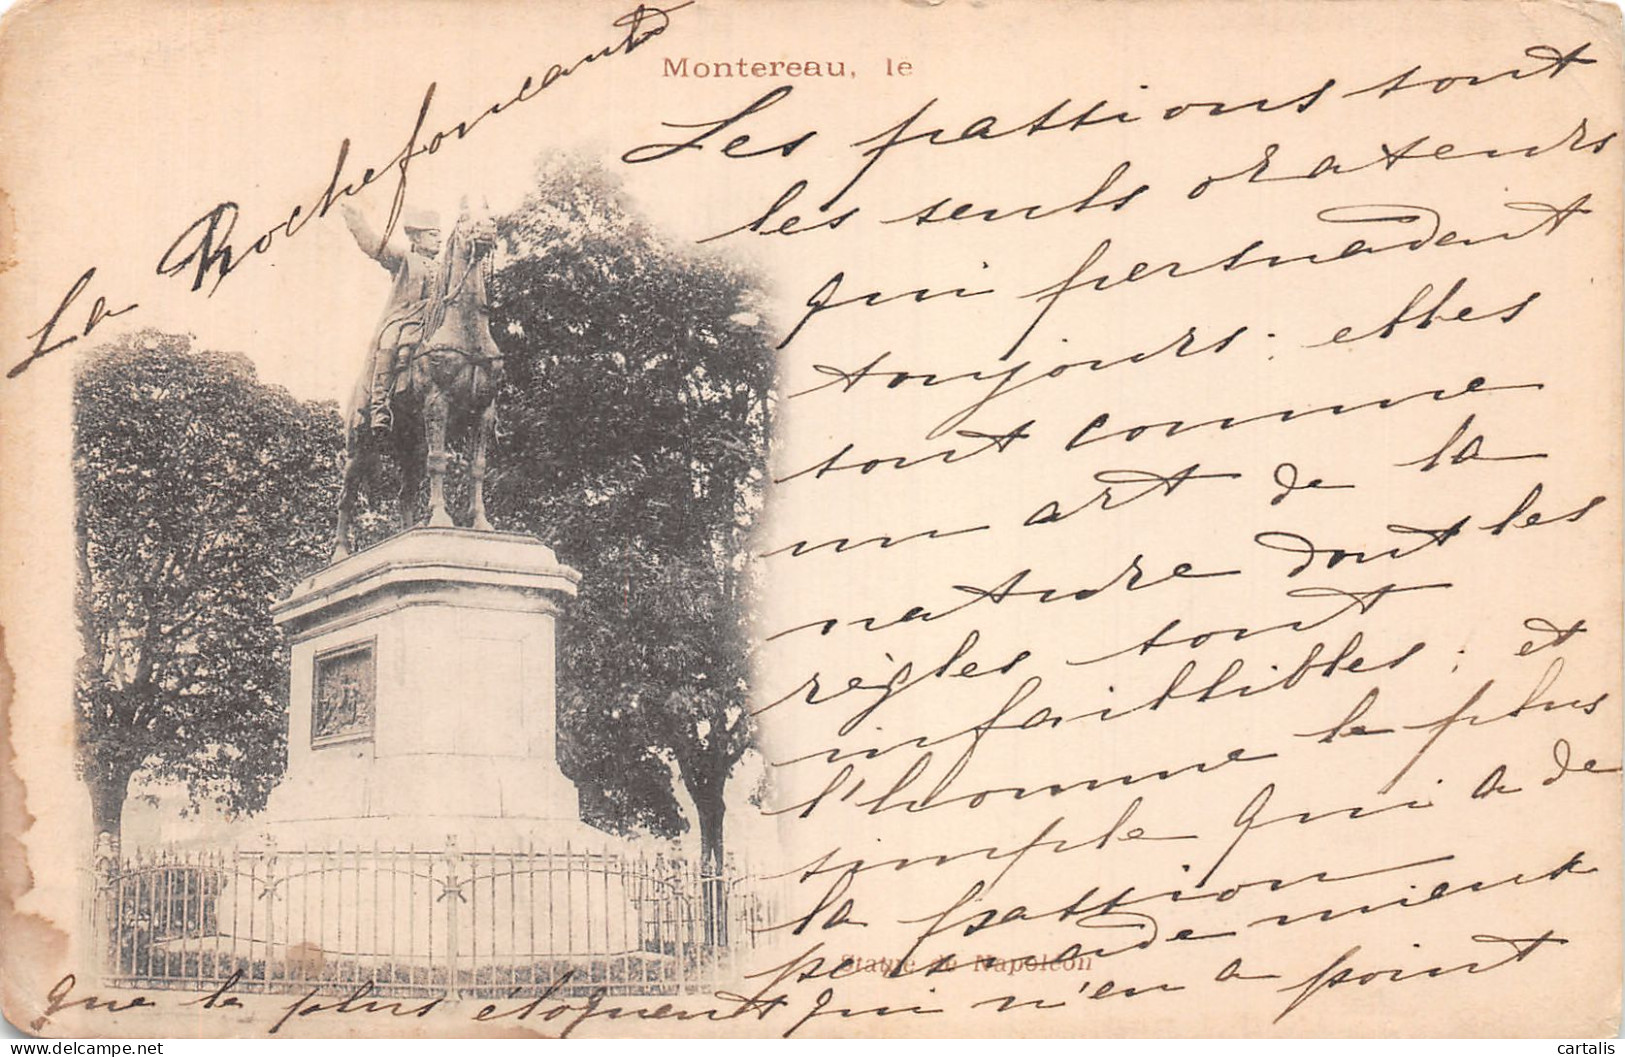 Montereau, le
Les passions sont
les seuls orateurs
qui persuadent
toujours : elles
sont comme
un art de la
nature dont les
règles sont
infaillibles ; et
l'homme le plus
simple qui a de
la passion
persuade mieux
que le plus éloquent qui n'en a point
La Rochefoucauld
Statue de Napoléon
cartalis